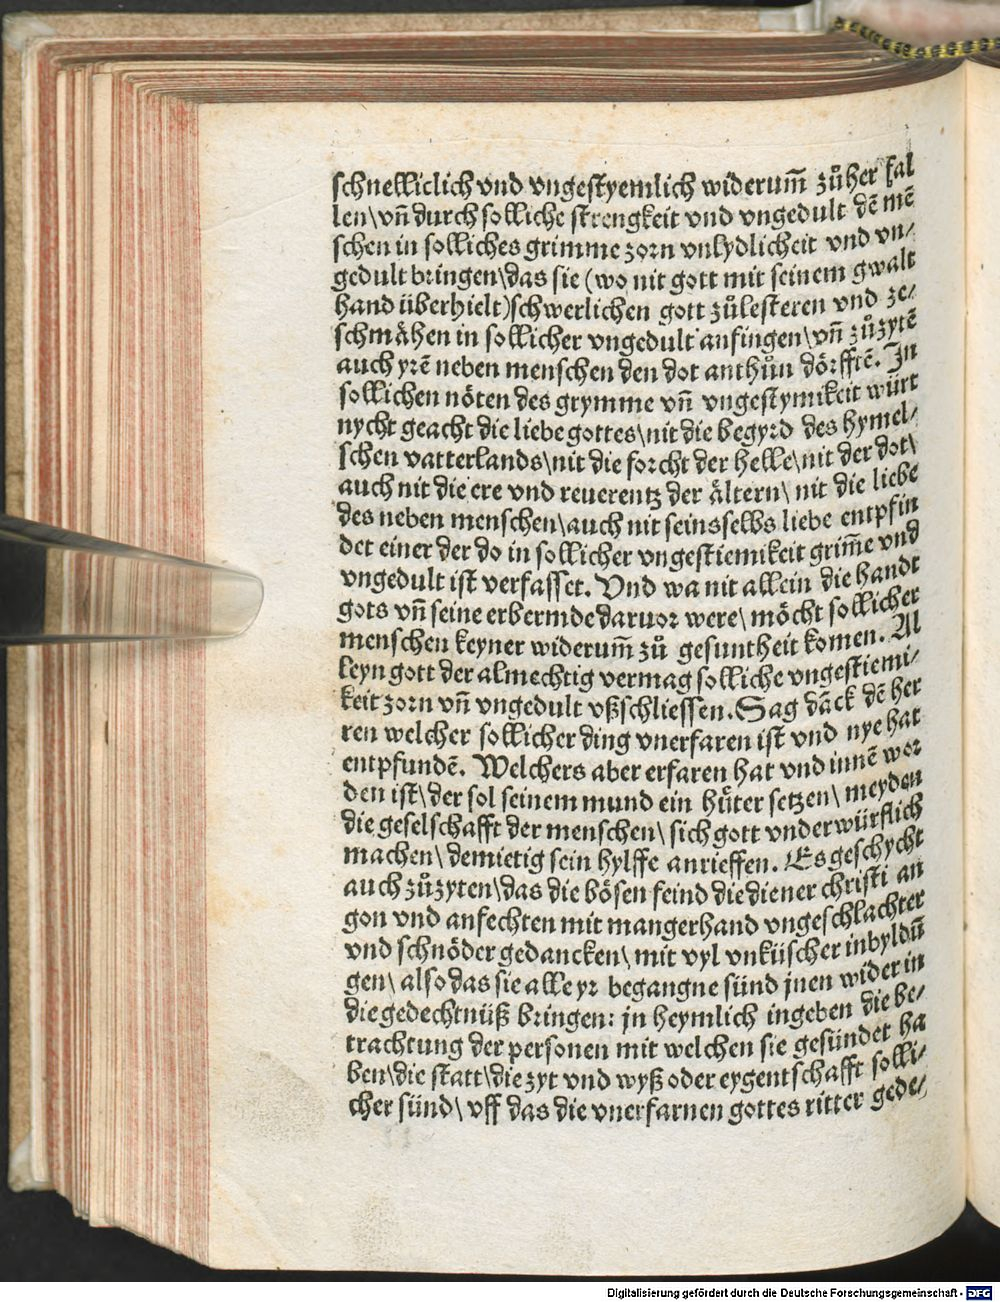 schnelliclich vnd vngestyemlich widerum̄ zůher fal
len\ vn̄ durch solliche strengkeit vnd vngedult dē mē
schen in solliches grimme zorn vnlydlicheit vnd vn/
gedult bringen\ das sie (wo nit gott mit seinem gwalt
hand überhielt) schwerlichen gott zůlesteren vnd ze/
schmåhen in sollicher vngedult anfingen\ vn̄ zůzytē
auch yrē neben menschen den dot anthůn dörfftē. In
sollichen nöten des grymme vn̄ vngestymikeit würt
nycht geacht die liebe gottes\ nit die begyrd des hymel/
schen vatterlands\ nit die forcht der helle\ nit der dot\
auch nit die ere vnd reuerentz der åltern\ nit die liebe
des neben menschen\ auch nit seinsselbs liebe entpfin
det einer der do in sollicher vngestiemikeit grim̄e vnd
vngedult ist verfasset. Vnd wa nit allein die handt
gots vn̄ seine erbermde daruor were\ möcht sollicher
menschen keyner widerum̄ zů gesuntheit komen. Al
leyn gott der almechtig vermag solliche vngestiemi/
keit zorn vn̄ vngedult vßschliessen. Sag dāck dē her
ren welcher sollicher ding vnerfaren ist vnd nye hat
entpfundē. Welchers aber erfaren hat vnd innē wor
den ist\ der sol seinem mund ein hüter setzen\ meyden
die geselschafft der menschen\ sich gott vnderwürflich
machen\ demietig sein hylffe anrieffen. Es geschycht
auch zůzyten\ das die bösen feind die diener christi an
gon vnd anfechten mit mangerhand vngeschlachter
vnd schnöder gedancken\ mit vyl vnküscher inbyldūn
gen\ also das sie alle yr begangne sünd jnen wider in
die gedechtnüß bringen: jn heymlich ingeben die be/
trachtung der personen mit welchen sie gesündet ha
ben\ die statt\ die zyt vnd wyß oder eygentschafft solli/
cher sünd\ vff das die vnerfarnen gottes ritter gede/
Digitalisierung gefördert durch die Deutsche Forschungsgemeinschaft - DFG